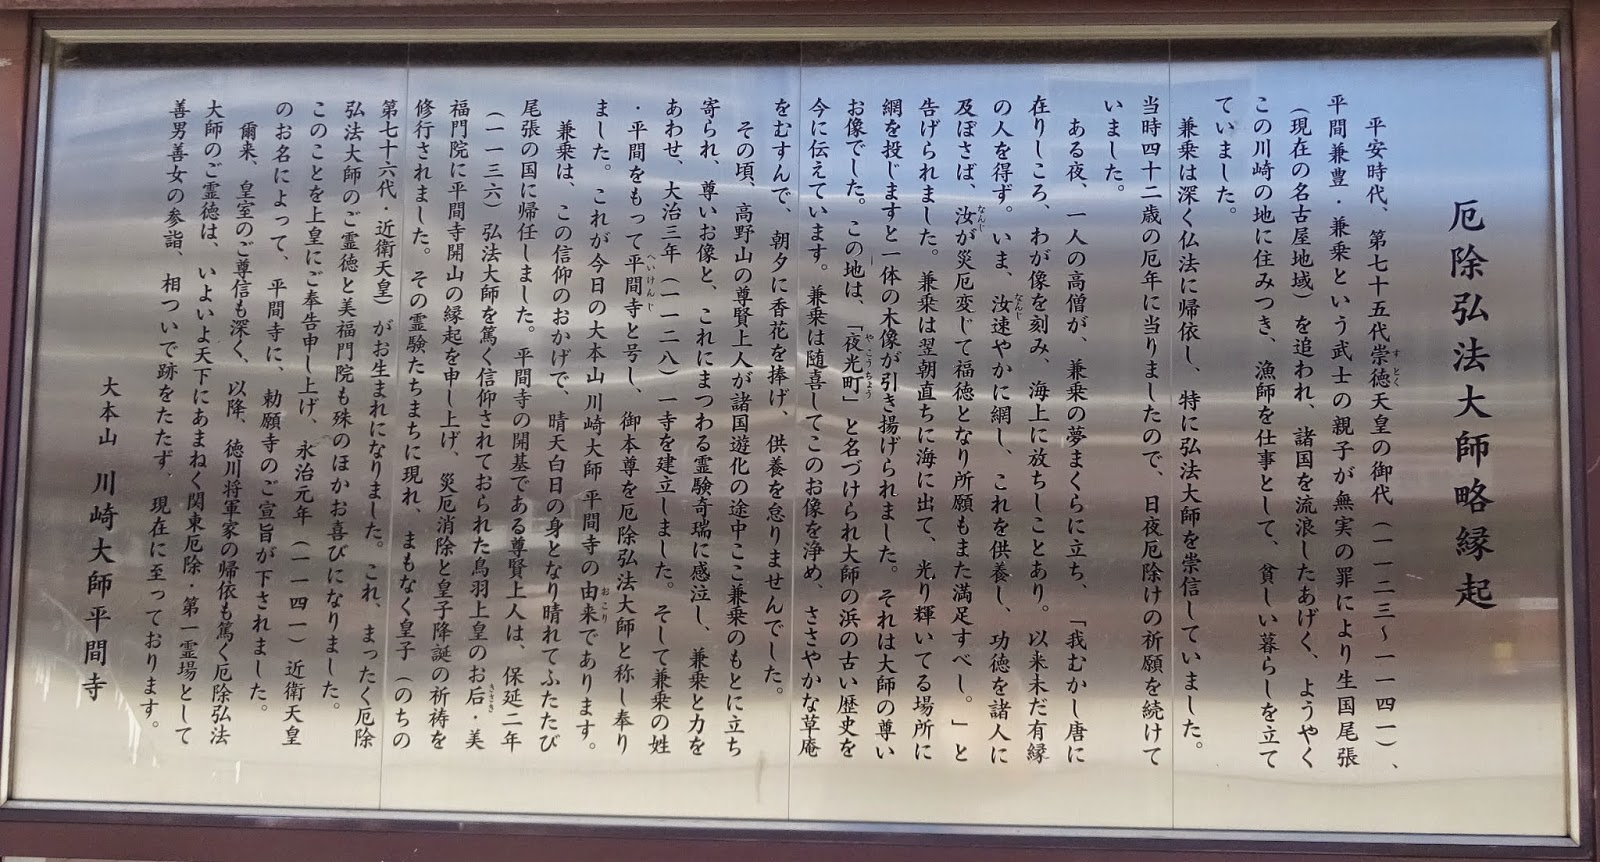 厄除弘法大師略縁起
平安時代、第七十五代崇徳天皇の御代（一一二三～一一四一）、
すとく
平間兼豊・兼乗という武士の親子が無実の罪により生国尾張
（現在の名古屋地域）を追われ、諸国を流浪したあげく、ようやく
この川崎の地に住みつき、漁師を仕事として、貧しい暮らしを立て
ていました。
兼乗は深く仏法に帰依し、特に弘法大師を崇信していました。
当時四十二歳の厄年に当りましたので、日夜厄除けの祈願を続けて
いました。
ある夜、一人の高僧が、兼乗の夢まくらに立ち、「我むかし唐に
在りしころ、わが像を刻み、海上に放ちしことあり。以来未だ有縁
の人を得ず。いま、汝速やかに網し、これを供養し、功徳を諸人に
なんじ
及ぼさば、汝が災厄変じて福徳となり所願もまた満足すべし。」と
なんじ
告げられました。兼乗は翌朝直ちに海に出て、光り輝いてる場所に
網を投じますと一体の木像が引き揚げられました。それは大師の尊い
お像でした。この地は、「夜光町」と名づけられ大師の浜の古い歴史を
やこうちょう
今に伝えています。兼乗は随喜してこのお像を浄め、ささやかな草庵
をむすんで、朝夕に香花を捧げ、供養を怠りませんでした。
その頃、高野山の尊賢上人が諸国遊化の途中ここ兼乗のもとに立ち
寄られ、尊いお像と、これにまつわる霊験奇瑞に感泣し、兼乗と力を
あわせ、大治三年（一一二八）一寺を建立しました。そして兼乗の姓
・平間をもって平間寺と号し、御本尊を厄除弘法大師と称し奉り
へいけんじ
ました。これが今日の大本山川崎大師平間寺の由来であります。
おこり
兼乗は、この信仰のおかげで、晴天白日の身となり晴れてふたたび
尾張の国に帰任しました。平間寺の開基である尊賢上人は、保延二年
（一一三六）弘法大師を篤く信仰されておられた鳥羽上皇のお后・美
きさき
福門院に平間寺開山の縁起を申し上げ、災厄消除と皇子降誕の祈祷を
修行されました。その霊験たちまちに現れ、まもなく皇子（のちの
第七十六代・近衛天皇）がお生まれになりました。これ、まったく厄除
弘法大師のご霊徳と美福門院も殊のほかお喜びになりました。
このことを上皇にご奉告申し上げ、永治元年（一一四一）近衛天皇
のお名によって、平間寺に、勅願寺のご宣旨が下されました。
爾来、皇室のご尊信も深く、以降、徳川将軍家の帰依も篤く厄除弘法
大師のご霊徳は、いよいよ天下にあまねく関東厄除・第一霊場として
善男善女の参詣、相ついで跡をたたず、現在に至っております。
大本山 川崎大師平間寺